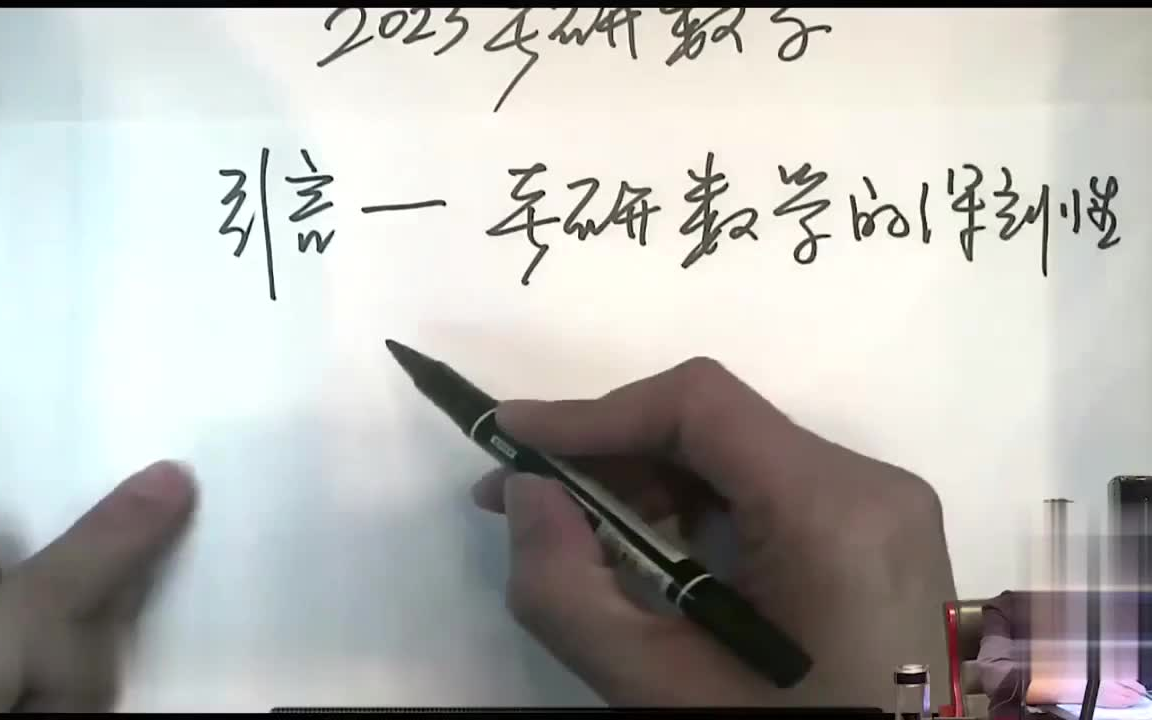 2023考研数学
引言一 考研数学的深刻性